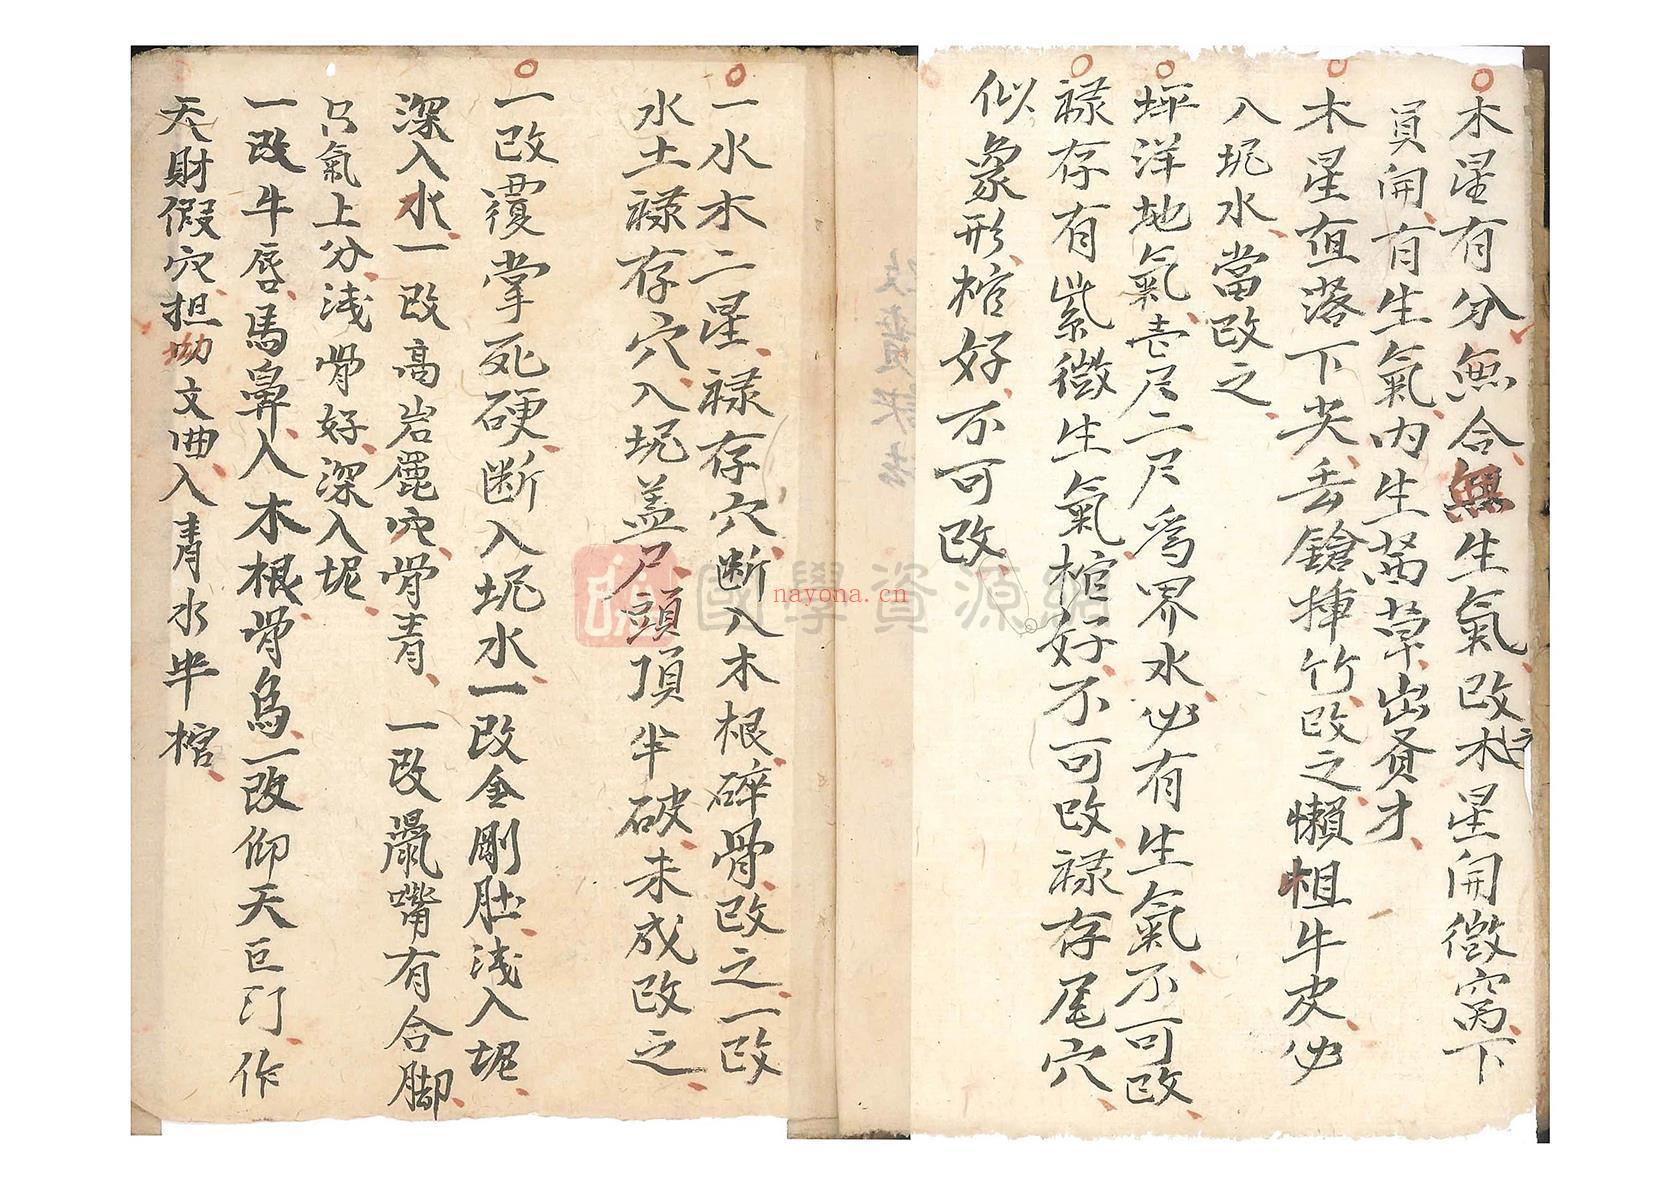 木星有分無合無生氣改木星開微窝下
員開有生氣內生萬草出贤才
木星直落下尖丢鎗揷竹改之懶坦牛皮必
入坭水當改之
坪洋地氣壱尺二尺爲界水必有生氣不可改
禄存有紫微生氣棺好不可改禄存尾穴
似象形棺好不可改
一水木二星禄存穴断入木根碎骨改之一改
水土禄存穴入坭盖尸頭頂半破未成改之
一改覆掌死硬断入坭水一改金剛肚浅入坭
深入水一改高岩穴骨青一改鼠嘴有合脚
只氣上分浅骨好深入坭
一改牛唇馬鼻入木根骨烏一改仰天巨汀作
天財假穴担坳文曲入青水半棺
國學資源網
nayona.cn